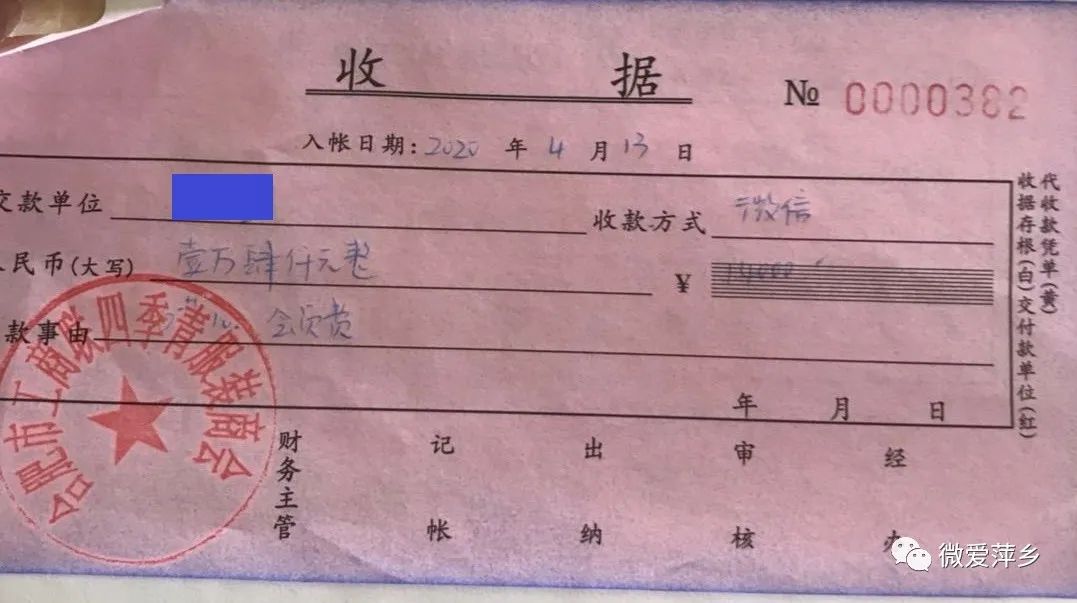 收 据
№ 0000382
入帐日期: 2020 年 4 月 13 日
交款单位
收款方式 微信
人民币(大写) 壹万肆仟元整
¥ 14000
款事由 会员费
年 月 日
财务主管 记帐 出纳 审核 经办
代收款凭单(黄)
收据存根(白)交付款单位(红)
合肥市工商联四季青服装商会
微爱萍乡